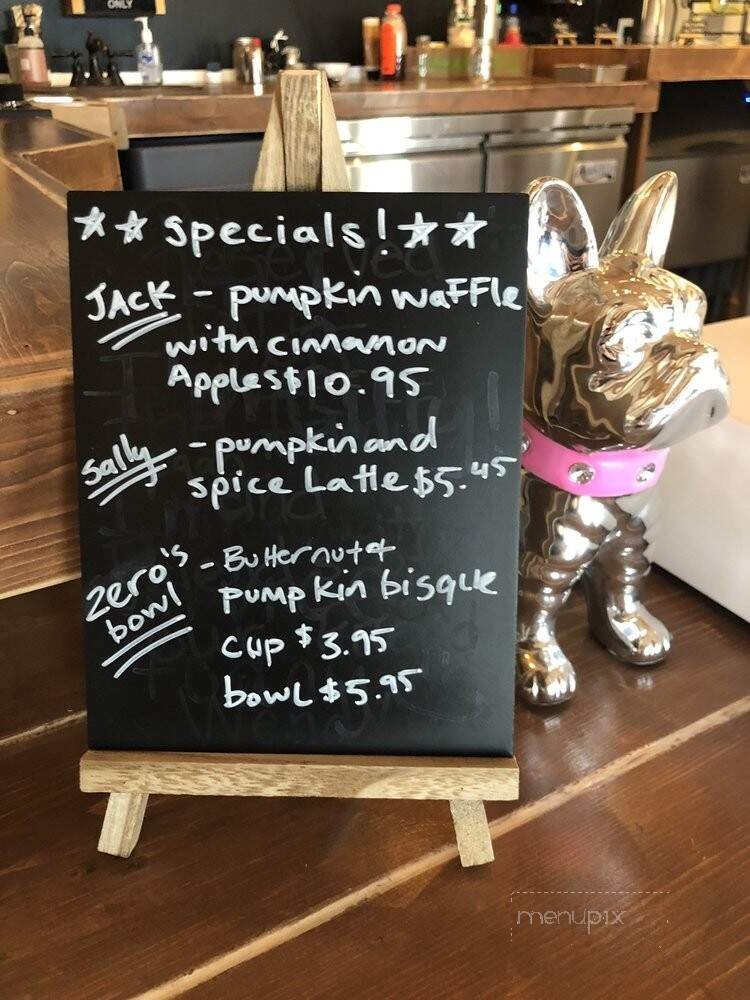 ONLY
☆☆ specials! ☆☆
JACK - pumpkin waffle
with cinnamon
Apples $10.95
Sally - pumpkin and
spice Latte $5.45
zero's bowl - Butternut +
pumpkin bisque
cup $3.95
bowl $5.95
menupix